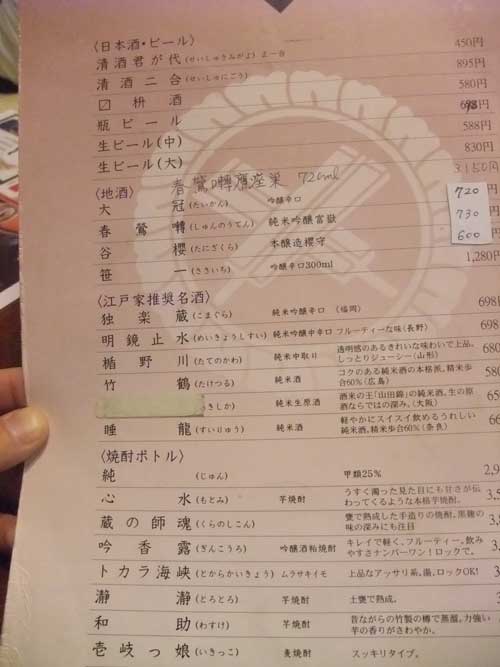 〈日本酒・ビール〉
清酒君が代(せいしゅきみがよ)2-合 450円
清酒二合(せいしゅにごう) 895円
〼枡酒 580円
瓶ビール
生ビール(中) 588円
生ビール(大) 830円
〈地酒〉 720ml 3150円
大冠(たいかん) 吟醸辛口 720
春鶯囀(しゅんのうてん) 純米吟醸富嶽 730
谷櫻(たにざくら) 本醸造櫻守 600
笹一(ささいち) 吟醸辛口300ml 1,280円
〈江戸家推奨名酒〉
独楽蔵(こまぐら) 純米吟醸辛口 (福岡) 698
明鏡止水(めいきょうしすい) 純米吟醸中辛口 フルーティーな味(長野)
楯野川(たてのかわ) 純米中取り 透明感のあるきれいな味わいで上品。
しっとりジューシー(山形)
竹鶴(たけつる) 純米酒 コクのある純米酒の本格派。精米歩
合60%(広島)
きしか) 純米生原酒 酒米の王「山田錦」の純米酒。生の原
酒ならではの深み。(大阪)
睡龍(すいりゅう) 純米酒 軽やかにスイスイ飲めるうれしい
純米酒。精米歩合60%(奈良)
〈焼酎ボトル〉
純(じゅん) 甲類25%
心水(もとみ) 芋焼酎 うすく濁った見た目にも甘さが伝
わってくるような本格芋焼酎。
蔵の師魂(くらのしこん) 甕で熟成した手造りの焼酎。黒麹
の味の深みにも注目
吟香露(ぎんこうろ) 吟醸酒粕焼酎 キレイで軽く、フルーティー。飲み
やすさナンバーワン!ロックで。
トカラ海峡(とからかいきょう) ムラサキイモ 上品なアッサリ系。湯、ロックOK!
瀞瀞(とろとろ) 芋焼酎 土甕で熟成。
和助(わすけ) 芋焼酎 昔ながらの竹製の樽で蒸溜。力強い
芋の香りがさわやか。
壱岐っ娘(いきっこ) 麦焼酎 スッキリタイプ。